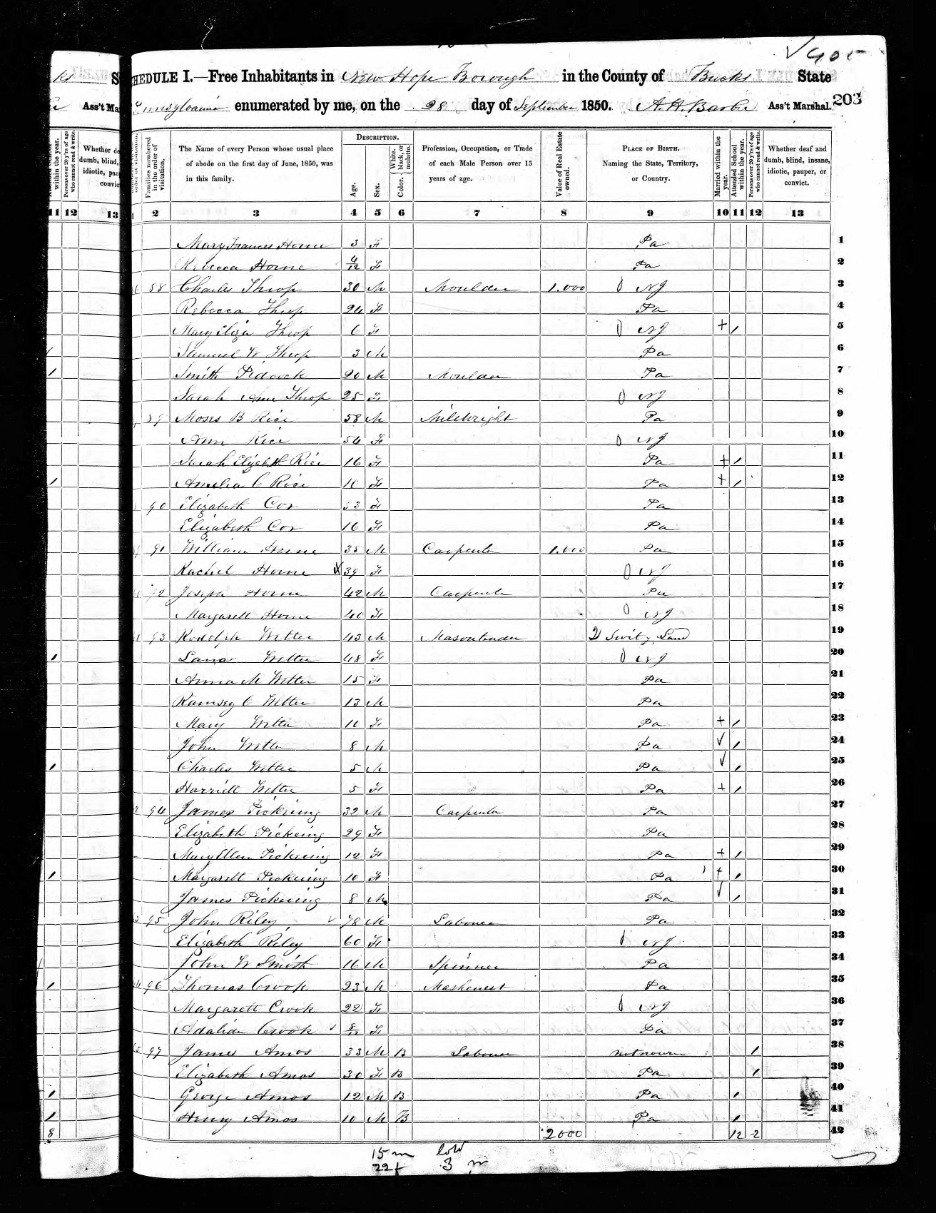 √ 405
SCHEDULE I.—Free Inhabitants in New Hope Borough in the County of Bucks State
Pennsylvania enumerated by me, on the 28 day of September 1850. A. H. Barber Ass't Marshal. 203
Families numbered in the order of visitation.
The Name of every Person whose usual place of abode on the first day of June, 1850, was in this family.
DESCRIPTION.
Age. Sex. Color, White, black, or mulatto.
Profession, Occupation, or Trade of each Male Person over 15 years of age.
Value of Real Estate owned.
PLACE OF BIRTH. Naming the State, Territory, or Country.
Married within the year. Attended School within the year. Persons over 20 y'rs of age who cannot read & write.
Whether deaf and dumb, blind, insane, idiotic, pauper, or convict.
2 3 4 5 6 7 8 9 10 11 12 13
Mary Frances Horne 3 F Pa 1
Rebecca Horne /12 F Pa 2
88 Charles Throp 30 M Moulder 1.000 NJ 3
Rebecca Throp 24 F Pa 4
Mary Eliza Throp 6 F NJ + / 5
Samuel W Throp 3 M Pa 6
Smith Pidcock 20 M Moulder Pa 7
Sarah Ann Throp 25 F NJ 8
89 Moses B Rice 58 M Millwright Pa 9
Ann Rice 54 F NJ 10
Sarah Elizabeth Rice 16 F Pa + / 11
Amelia C Rice 10 F Pa + / 12
90 Elizabeth Cox 53 F Pa 13
Elizabeth Cox 16 F Pa 14
91 William Horne 35 M Carpenter 1.000 Pa 15
Rachel Horne X 39 F NJ 16
92 Joseph Horne 42 M Carpenter Pa 17
Margarett Horne 40 F NJ 18
93 Rodolph Wetter 43 M Masontender Switzland 19
Lana Wetter 48 F NJ 20
Anna M Wetter 15 F Pa 21
Ramsey C Wetter 13 M Pa 22
Mary Wetter 11 F Pa + / 23
John Wetter 8 M Pa √ / 24
Charles Wetter 5 M Pa √ / 25
Harriett Wetter 5 F Pa + / 26
94 James Pickering 32 M Carpenter Pa 27
Elizabeth Pickering 29 F Pa 28
Mary Ellen Pickering 12 F Pa + / 29
Margarett Pickering 10 F Pa + / 30
James Pickering 8 M Pa √ / 31
95 John Riley 78 M Labourer Pa 32
Elizabeth Riley 60 F NJ 33
John W Smith 16 M Spinner Pa 34
96 Thomas Crook 23 M Mashenest Pa 35
Margarett Crook 22 F NJ 36
Adalida Crook /12 F Pa 37
97 James Amos 33 M B Labourer notnown / 38
Elizabeth Amos 30 F B Pa / 39
George Amos 12 M B Pa / 40
Henry Amos 10 M B Pa / 41
2000 12 2 42
15 m Cold
22 f 3 m